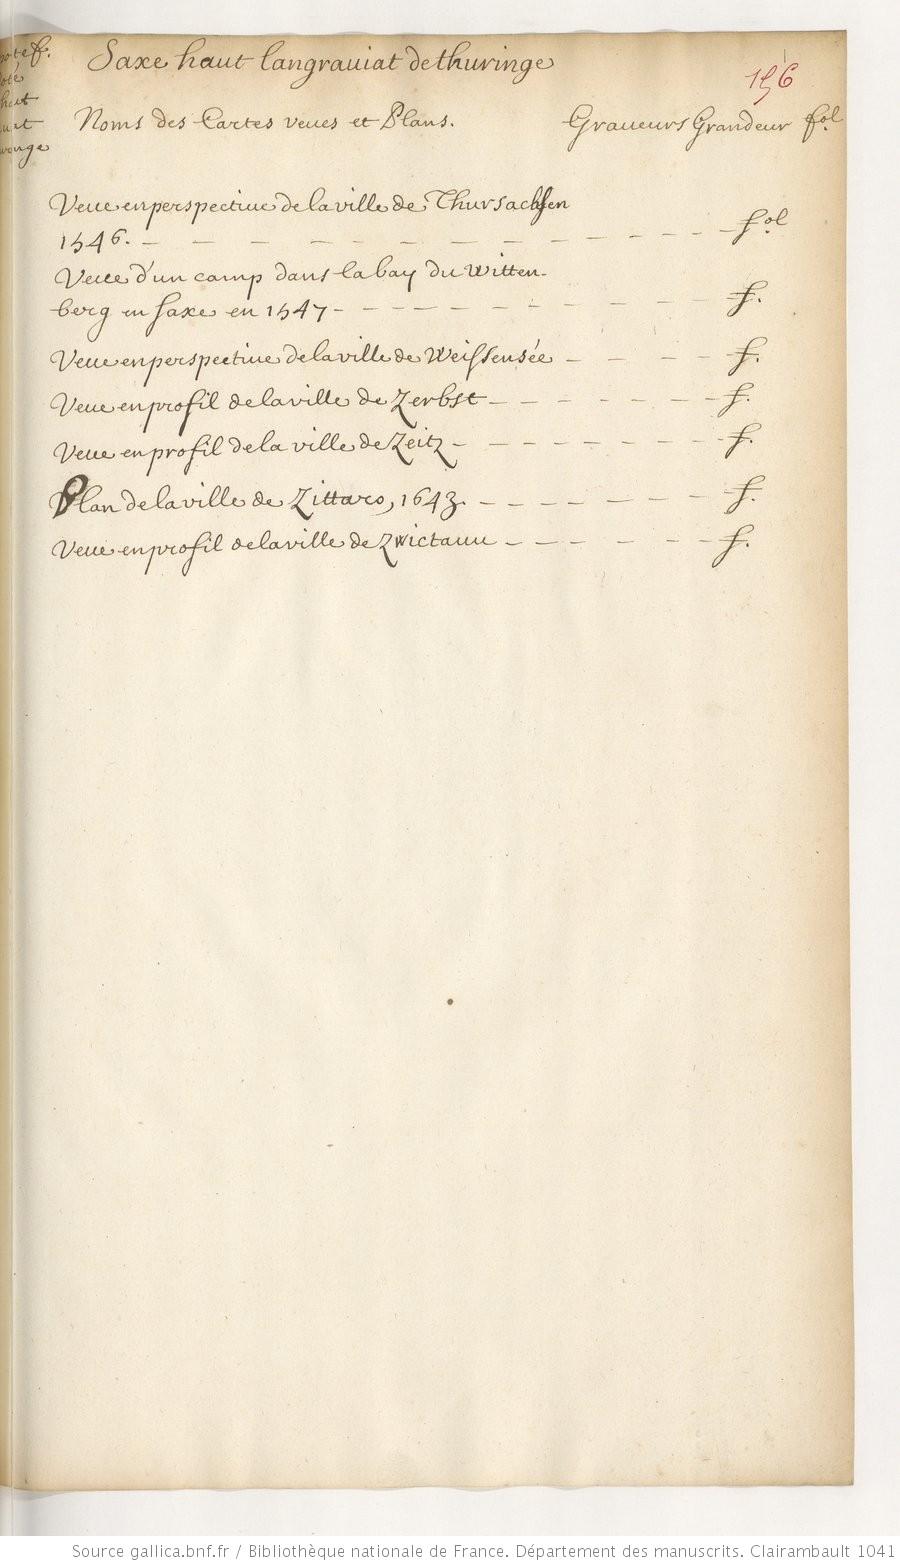 Saxe haut langraviat dethuringe
156
Noms des Cartes veues et Plans. Graveurs Grandeur fol
Veue enperspective delaville de Thursachsen
1546. — — — — — — — — — — — fol.
Veue d'un camp dans la bay du Witten-
berg en saxe en 1547 - — — — — — — — — f.
Veue enperspective delaville de Weissensée — — — — — f.
Veue enprofil delaville de Zerbst — — — — — — — f.
Veue en profil dela ville de Zeitz — — — — — — — f.
Plan delaville de Zittaro, 1643. — — — — — — — f.
Veue enprofil delaville de Zwictauu — — — — — — f.
Source gallica.bnf.fr / Bibliothèque nationale de France. Département des manuscrits. Clairambault 1041